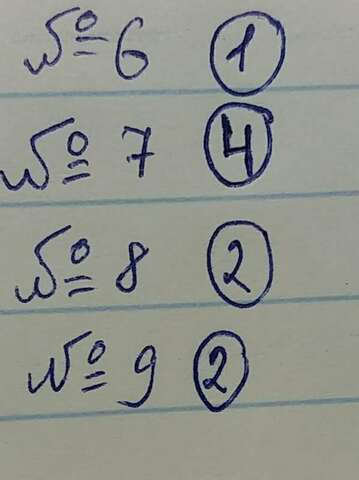 № 6 1
№ 7 4
№ 8 2
№ 9 2